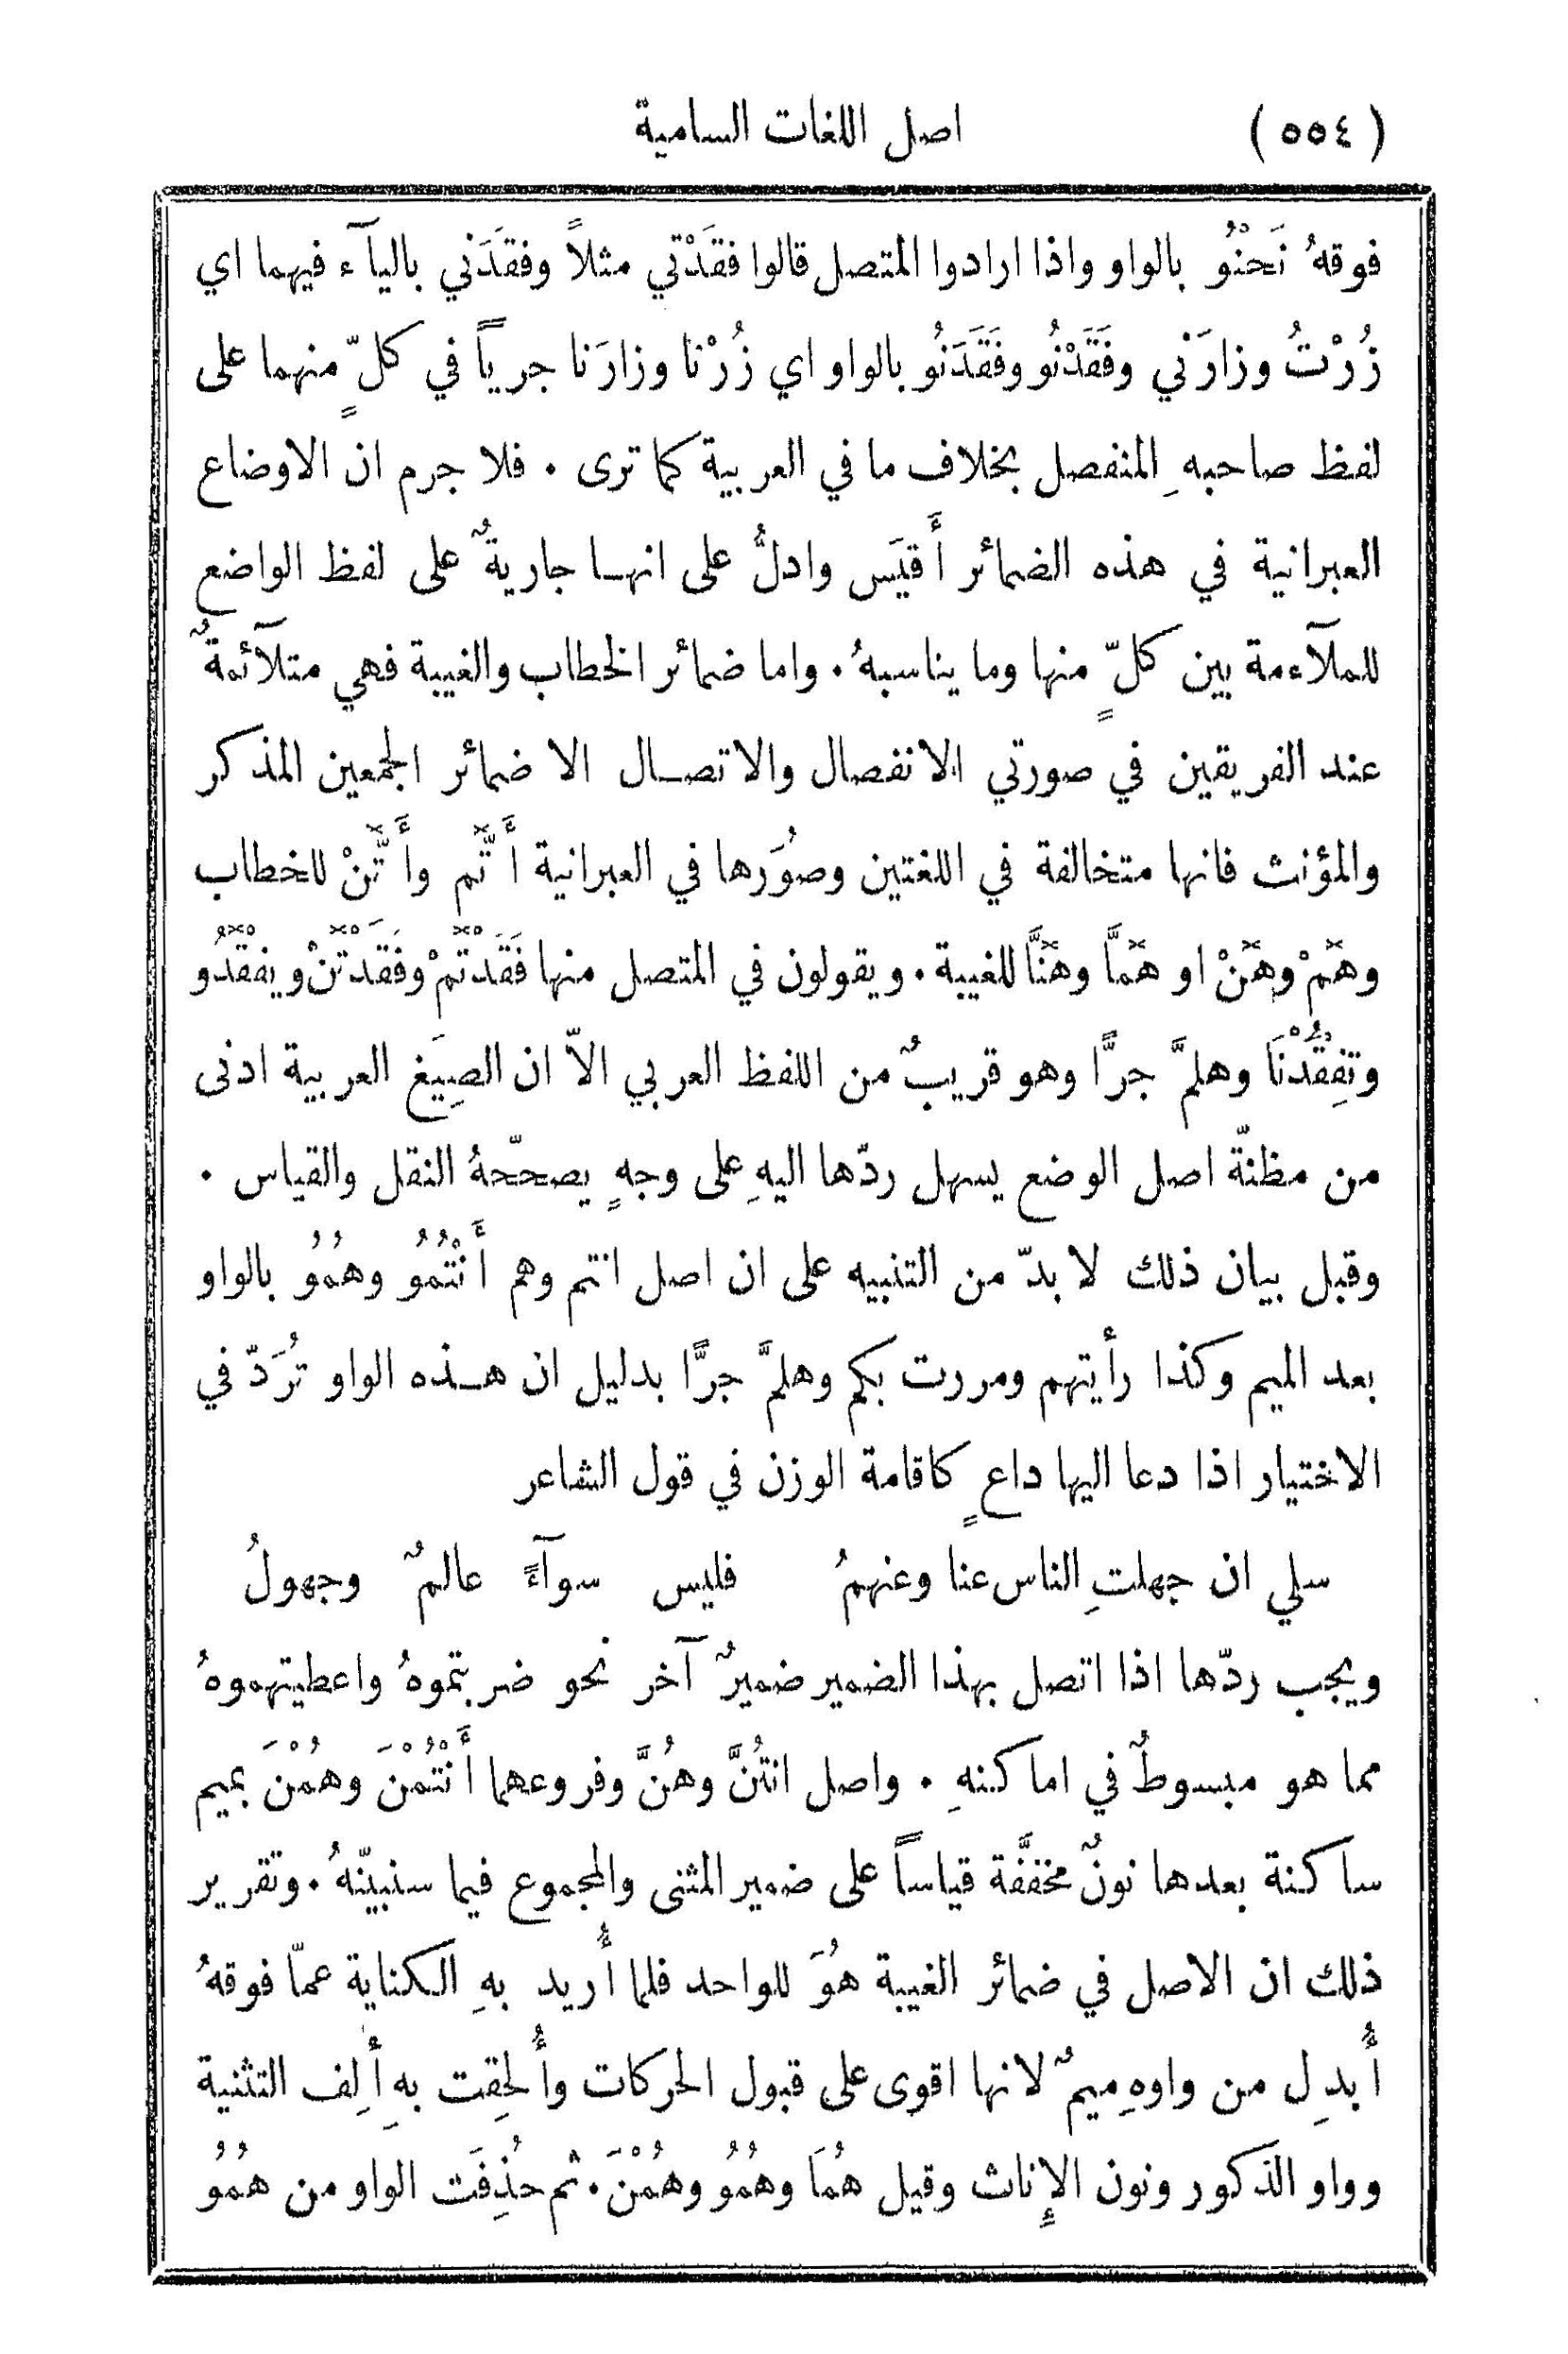 (٥٥٤) اصل اللغات السامية
فوقهُ نَحْنُو بالواو واذا ارادوا المتصل قالوا فقَدْتي مثلاً وفقَدَني باليآء فيهما اي
زُرْتُ وزارَني وفَقَدْنُو وفَقَدَنُو بالواو اي زُرْنا وزارَنا جرياً في كلٍّ منهما على
لفظ صاحبهِ المنفصل بخلاف ما في العربية كما ترى ٠ فلا جرم ان الاوضاع
العبرانية في هذه الضمائر أَقيَس وادلُّ على انها جاريةٌ على لفظ الواضع
للملآءمة بين كلٍّ منها وما يناسبهُ ٠ واما ضمائر الخطاب والغيبة فهي متلآئمةٌ
عند الفريقين في صورتي الانفصال والاتصال الا ضمائر الجمعين المذكر
والمؤنث فانها متخالفة في اللغتين وصُوَرها في العبرانية أَتّم وأَتّنْ للخطاب
وهمْ وهنْ او همَّا وهنَّا للغيبة ٠ ويقولون في المتصل منها فَقَدْتّمْ وفَقَدْتّنْ ويفْقدُو
وتفِقُدْنَا وهلمَّ جرًّا وهو قريبٌ من اللفظ العربي الاّ ان الصِيَغ العربية ادنى
من مظنّة اصل الوضع يسهل ردّها اليهِ على وجهٍ يصحّحهُ النقل والقياس ٠
وقبل بيان ذلك لا بدّ من التنبيه على ان اصل انتم وهم أَنْتُمُو وهُمُو بالواو
بعد الميم وكذا رأَيتهم ومررت بكم وهلمَّ جرًّا بدليل ان هذه الواو تُرَدّ في
الاختيار اذا دعا اليها داعٍ كاقامة الوزن في قول الشاعر
سلي ان جهلتِ الناس عنا وعنهمُ فليس سوآءً عالمٌ وجهولُ
ويجب ردّها اذا اتصل بهذا الضمير ضميرٌ آخر نحو ضربتموهُ واعطيتهموهُ
مما هو مبسوطٌ في اماكنهِ ٠ واصل انتُنَّ وهُنَّ وفروعهما أَنْتُمْنَ وهُمْنَ بميم
ساكنة بعدها نونٌ مخفَّفة قياساً على ضمير المثنى والمجموع فيما سنبيّنهُ ٠ وتقرير
ذلك ان الاصل في ضمائر الغيبة هُوَ للواحد فلما أُريد بهِ الكناية عمّا فوقهُ
أُبدِل من واوهِ ميمٌ لانها اقوى على قبول الحركات وأُلحِقت بهِ أَلِف التثنية
وواو الذكور ونون الإِناث وقيل هُمَا وهُمُو وهُمْنَ ٠ ثم حُذِفَت الواو من هُمُو